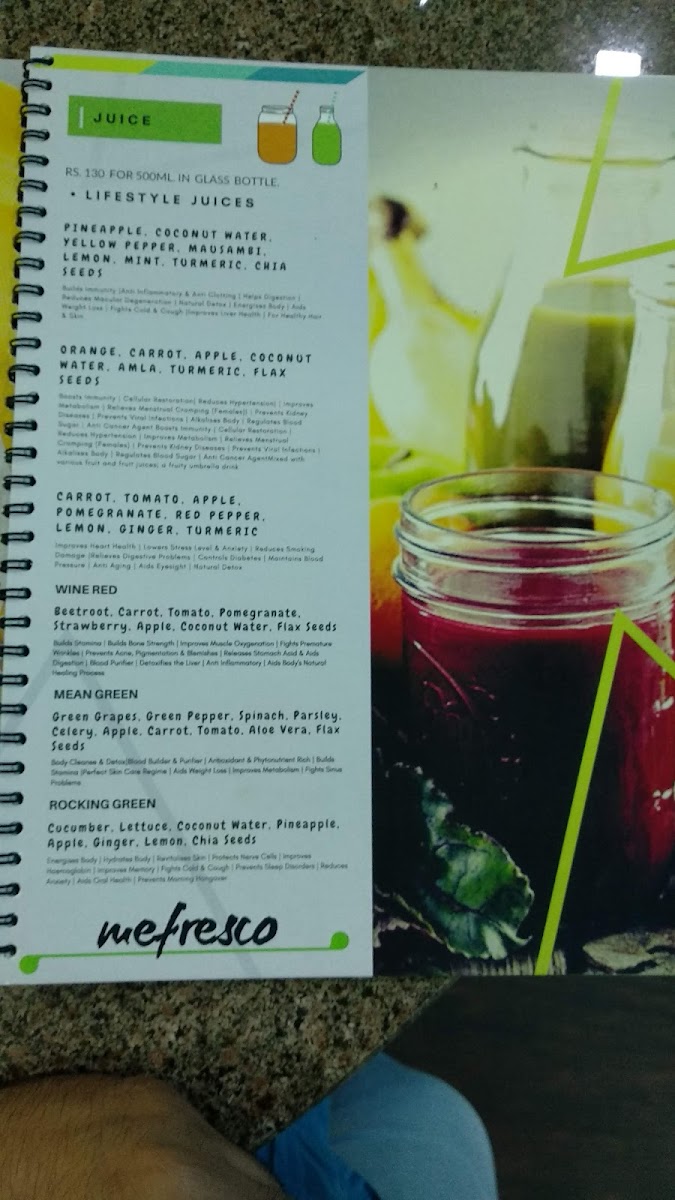 JUICE
RS. 130 FOR 500ML. IN GLASS BOTTLE.
• LIFESTYLE JUICES
PINEAPPLE, COCONUT WATER,
YELLOW PEPPER, MAUSAMBI,
LEMON, MINT, TURMERIC, CHIA
SEEDS
Builds Immunity |Anti Inflammatory & Anti Clotting | Helps Digestion |
Reduces Macular Degeneration | Natural Detox | Energises Body | Aids
Weight Loss | Fights Cold & Cough |Improves Liver Health | For Healthy Hair
& Skin
ORANGE, CARROT, APPLE, COCONUT
WATER, AMLA, TURMERIC, FLAX
SEEDS
Boosts Immunity | Cellular Restoration| Reduces Hypertension| | Improves
Metabolism | Relieves Menstrual Cramping (Females)| | Prevents Kidney
Diseases | Prevents Viral Infections | Alkalises Body | Regulates Blood
Sugar | Anti Cancer Agent Boosts Immunity | Cellular Restoration |
Reduces Hypertension | Improves Metabolism | Relieves Menstrual
Cramping (Females) | Prevents Kidney Diseases | Prevents Viral Infections |
Alkalises Body | Regulates Blood Sugar | Anti Cancer AgentMixed with
various fruit and fruit juices; a fruity umbrella drink
CARROT, TOMATO, APPLE,
POMEGRANATE, RED PEPPER,
LEMON, GINGER, TURMERIC
Improves Heart Health | Lowers Stress Level & Anxiety | Reduces Smoking
Damage |Relieves Digestive Problems | Controls Diabetes | Maintains Blood
Pressure | Anti Aging | Aids Eyesight | Natural Detox
WINE RED
Beetroot, Carrot, Tomato, Pomegranate,
Strawberry, Apple, Coconut Water, Flax Seeds
Builds Stamina | Builds Bone Strength | Improves Muscle Oxygenation | Fights Premature
Wrinkles | Prevents Acne, Pigmentation & Blemishes | Releases Stomach Acid & Aids
Digestion | Blood Purifier | Detoxifies the Liver | Anti Inflammatory | Aids Body's Natural
Healing Process
MEAN GREEN
Green Grapes, Green Pepper, Spinach, Parsley,
Celery, Apple, Carrot, Tomato, Aloe Vera, Flax
Seeds
Body Cleanse & Detox|Blood Builder & Purifier | Antioxidant & Phytonutrient Rich | Builds
Stamina |Perfect Skin Care Regime | Aids Weight Loss | Improves Metabolism | Fights Sinus
Problems
ROCKING GREEN
Cucumber, Lettuce, Coconut Water, Pineapple,
Apple, Ginger, Lemon, Chia Seeds
Energises Body | Hydrates Body | Revitalises Skin | Protects Nerve Cells | Improves
Haemoglobin | Improves Memory | Fights Cold & Cough | Prevents Sleep Disorders | Reduces
Anxiety | Aids Oral Health | Prevents Morning Hangover
mefresco